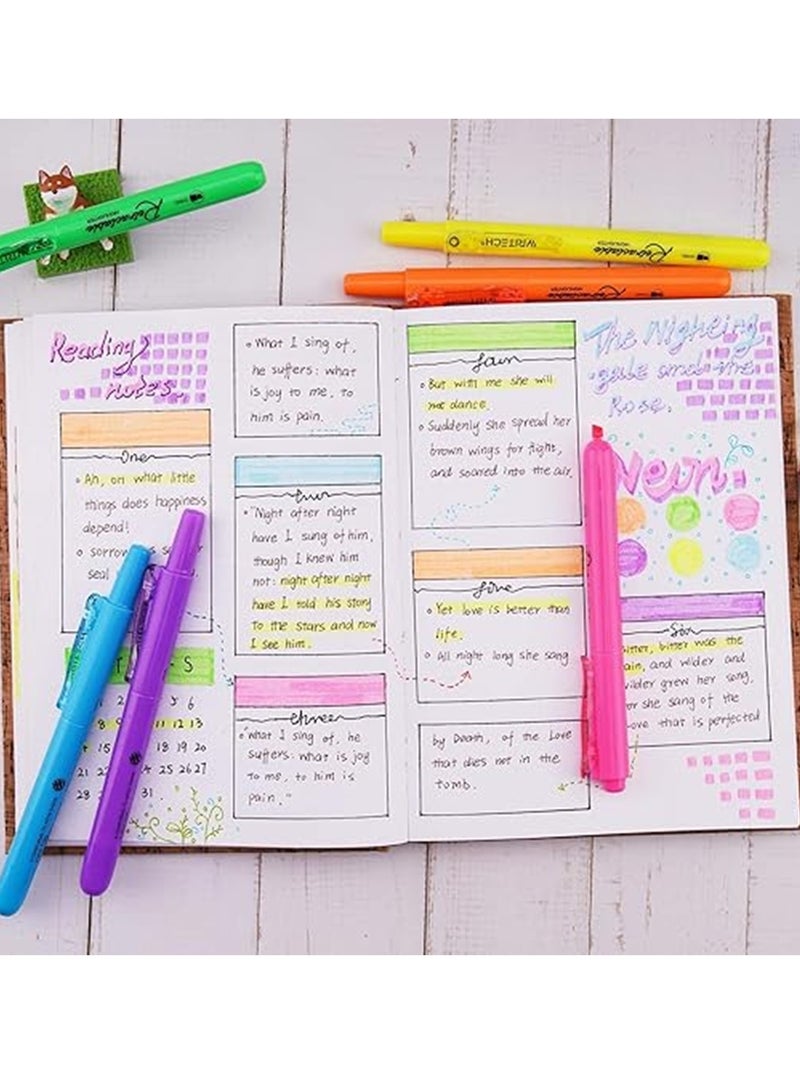 Retractable
HIGHLIGHTER
WRITECH
Retractable
HIGHLIGHTER
Retractable
HIGHLIGHTER
Reading
notes
One
Ah, on what little
things does happiness
depend!
sorrow
seal
S
5 6
8 9 11 12 13
15 18 19 20
21 22 24 25 26 27
28 31.
What I sing of,
he suffers: what
is joy to me, to
him is pain.
"Night after night
have I sung of him,
though I knew him
not: night after night
have I told his story
to the stars and now
I see him.
three
"What I sing of, he
suffers: what is joy
to me, to him is
pain."
four
But with me she will
not dance.
Suddenly she spread her
brown wings for flight,
and soared into the air.
five
Yet love is better than
life.
All night long she sang
by Death, of the Love
that dies not in the
tomb.
The Nigheing
gale and the
Rose.
Neon.
Six
bitter was the
and wilder and
grew her song,
she sang of the
that is perfected